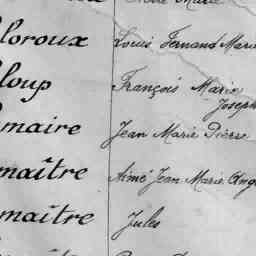 loroux Louis Fernand Marie
loup François Marie
Joseph
maire Jean Marie Pierre
maître Aimé Jean Marie Ang
maître Jules